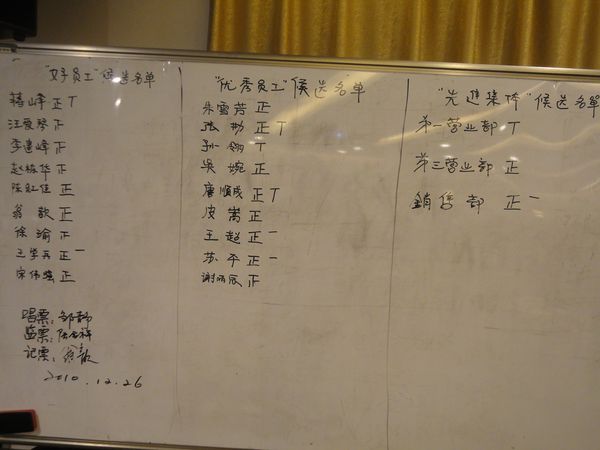 "好员工"候选名单
蒋峰 正丅
汪爱琴 正
李建峰 正
赵栋华 正
陈红佳 正
翁歆 正
徐渝 正
王学兵 正一
宋伟强 正
唱票:邹静
监票:
记票:翁歆
2010.12.26
"优秀员工"候选名单
朱雪芳 正
张勃 正丅
孙翎 丅
吴婉 正
唐顺成 正丅
皮嵩 正
王赵 正一
苏平 正一
谢丽辰 正
"先進集体"候选名单
第一营业部 丅
第三营业部 正
銷售部 正一